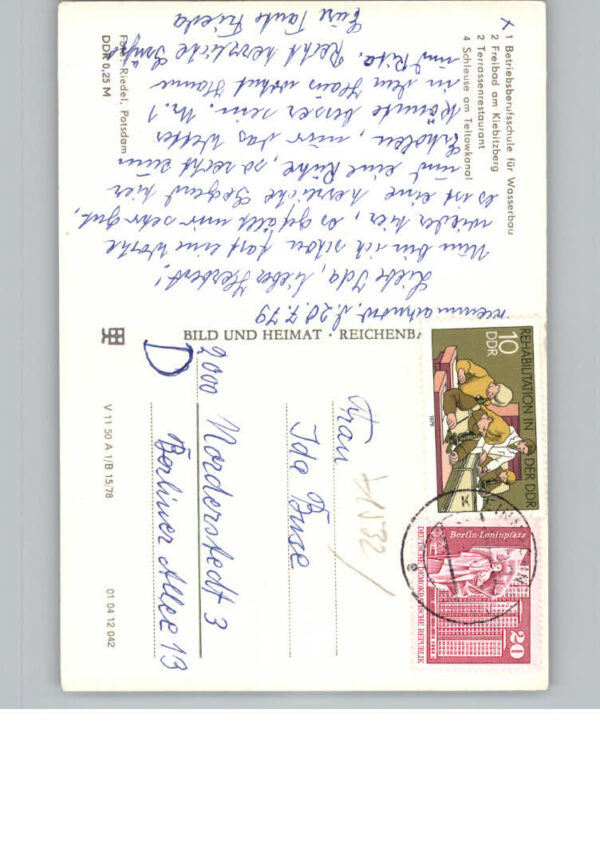 x 1 Betriebsberufsschule für Wasserbau
2 Freibad am Kiebitzberg
2 Terrassenrestaurant
4 Schleuse am Teltowkanal
Kleinmachnow, d. 20.7.79
Liebe Ida, lieber Herbert!
Nun bin ich schon fast eine Woche
wieder hier, es gefällt mir sehr gut,
es ist eine herrliche Gegend hier
und eine Ruhe, so recht zum
Erholen, nur das Wetter
könnte besser sein. Nr. 1
in dem Haus wohnt Hanne
und Rita. Recht herzliche Grüße
Eure Tante Frieda
Foto: Riedel, Potsdam
DDR 0,25 M
BILD UND HEIMAT · REICHENBA
V 11 50 A 1/B 15/78
01 04 12 042
Frau
Ida Buse
2000 Norderstedt 3
Berliner Allee 13
D
REHABILITATION IN DER DDR
10
DDR
1979
Berlin Leninplatz
DEUTSCHE DEMOKRATISCHE REPUBLIK
20